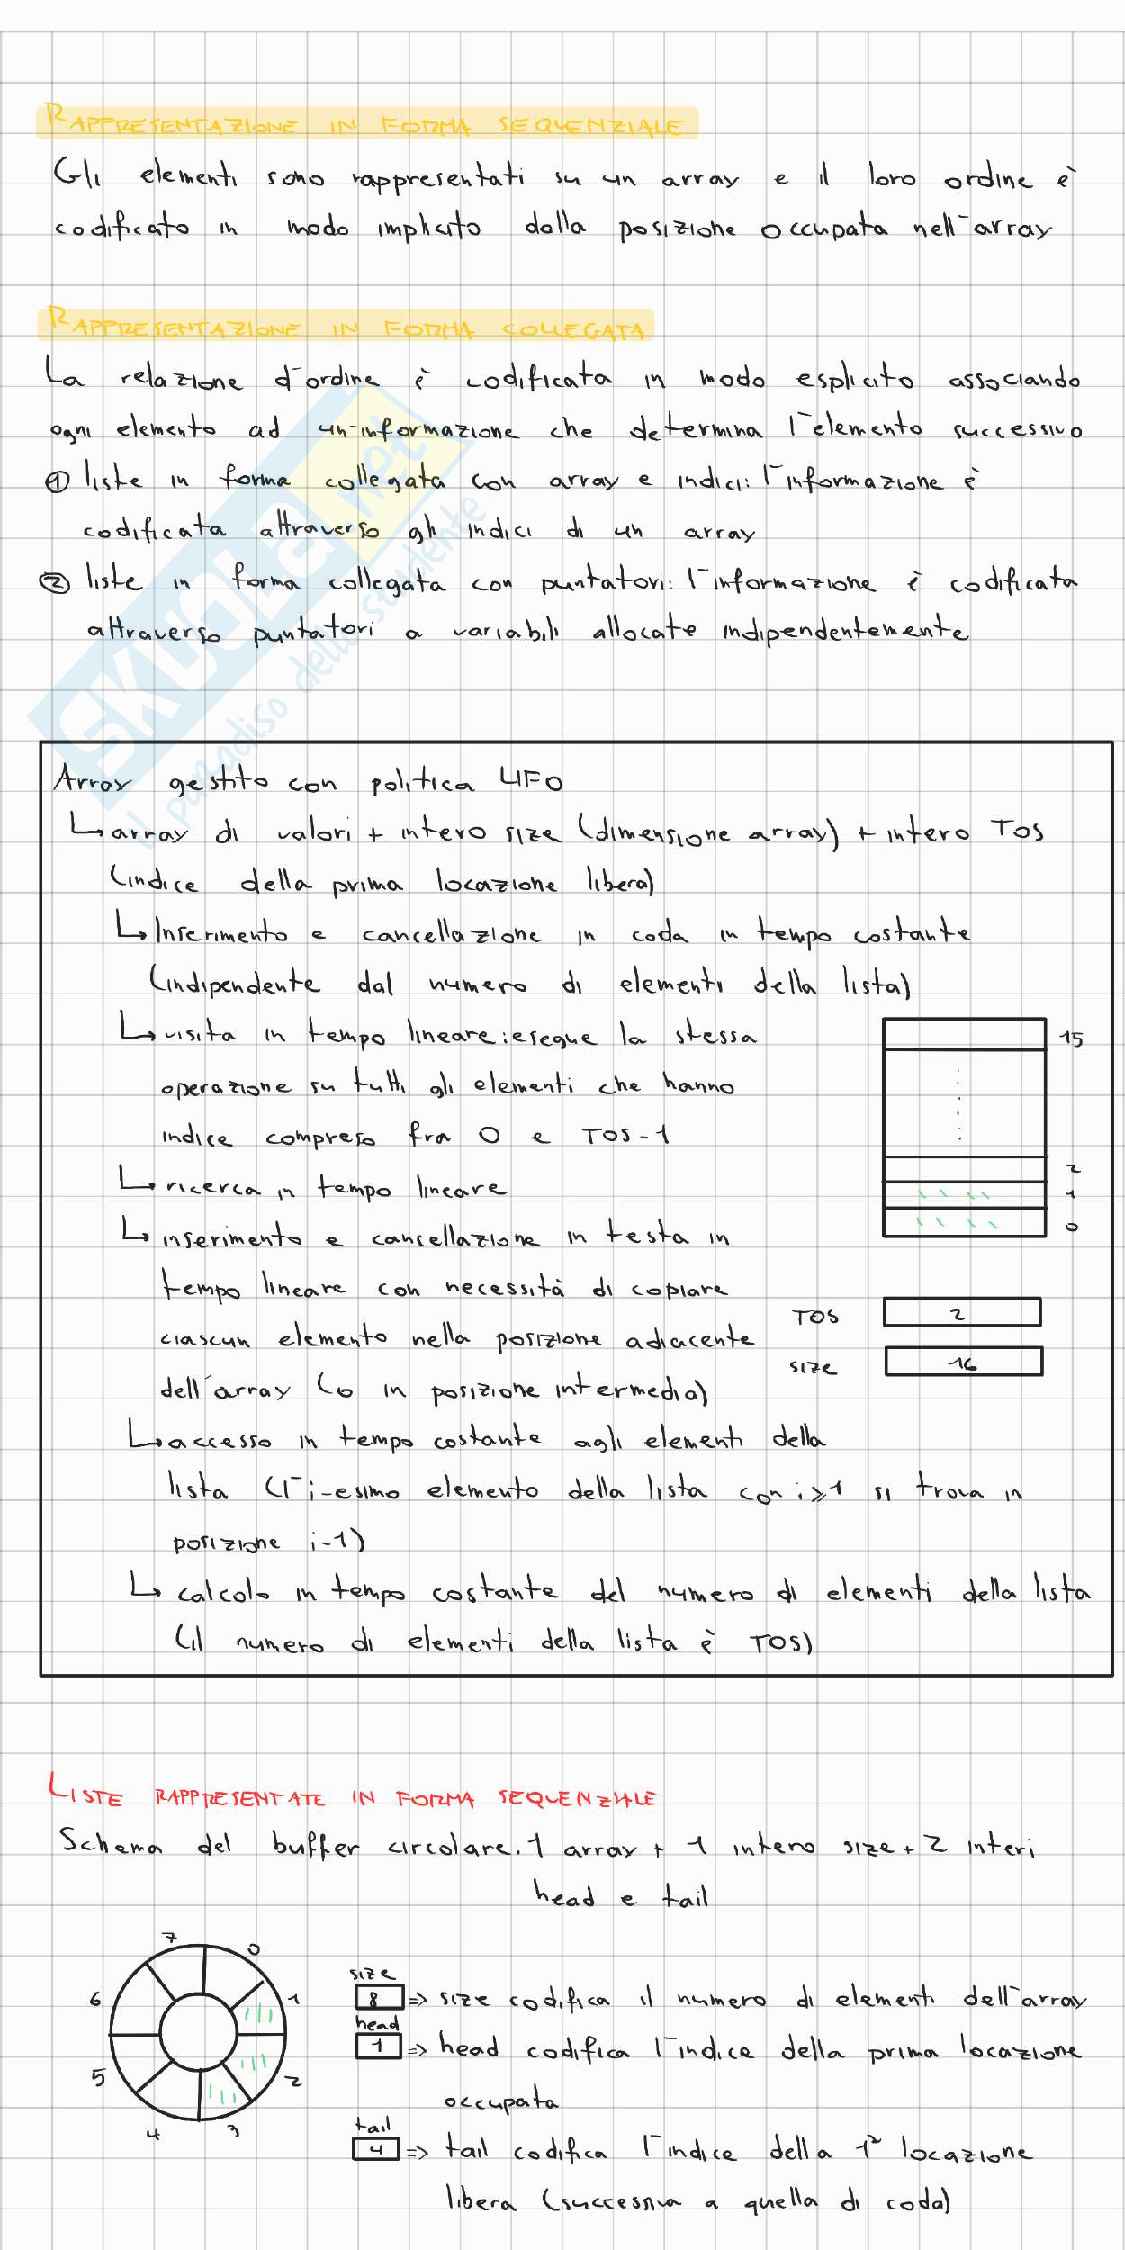 RAPPRESENTAZIONE IN FORMA SEQUENZIALE
Gli elementi sono rappresentati su un array e il loro ordine è
codificato in modo implicito dalla posizione occupata nell'array
RAPPRESENTAZIONE IN FORMA COLLEGATA
La relazione d'ordine è codificata in modo esplicito associando
ogni elemento ad un'informazione che determina l'elemento successivo
① liste in forma collegata con array e indici: l'informazione è
codificata attraverso gli indici di un array
② liste in forma collegata con puntatori: l'informazione è codificata
attraverso puntatori a variabili allocate indipendentemente
SKUOLA.net
il paradiso dello studente
Array gestito con politica LIFO
↳ array di valori + intero size (dimensione array) + intero TOS
(indice della prima locazione libera)
↳ Inserimento e cancellazione in coda in tempo costante
(indipendente dal numero di elementi della lista)
↳ visita in tempo lineare: esegue la stessa
operazione su tutti gli elementi che hanno
indice compreso fra 0 e TOS-1
↳ ricerca in tempo lineare
↳ inserimento e cancellazione in testa in
tempo lineare con necessità di copiare
ciascun elemento nella posizione adiacente
dell'array (o in posizione intermedia)
↳ accesso in tempo costante agli elementi della
lista (l'i-esimo elemento della lista con i≥1 si trova in
posizione i-1)
↳ calcolo in tempo costante del numero di elementi della lista
(il numero di elementi della lista è TOS)
15
2
1
0
TOS 2
size 16
LISTE RAPPRESENTATE IN FORMA SEQUENZIALE
Schema del buffer circolare. 1 array + 1 intero size + 2 interi
head e tail
7 0
6 1
5 2
4 3
size
8 => size codifica il numero di elementi dell'array
head
1 => head codifica l'indice della prima locazione
occupata
tail
4 => tail codifica l'indice della 1ª locazione
libera (successiva a quella di coda)